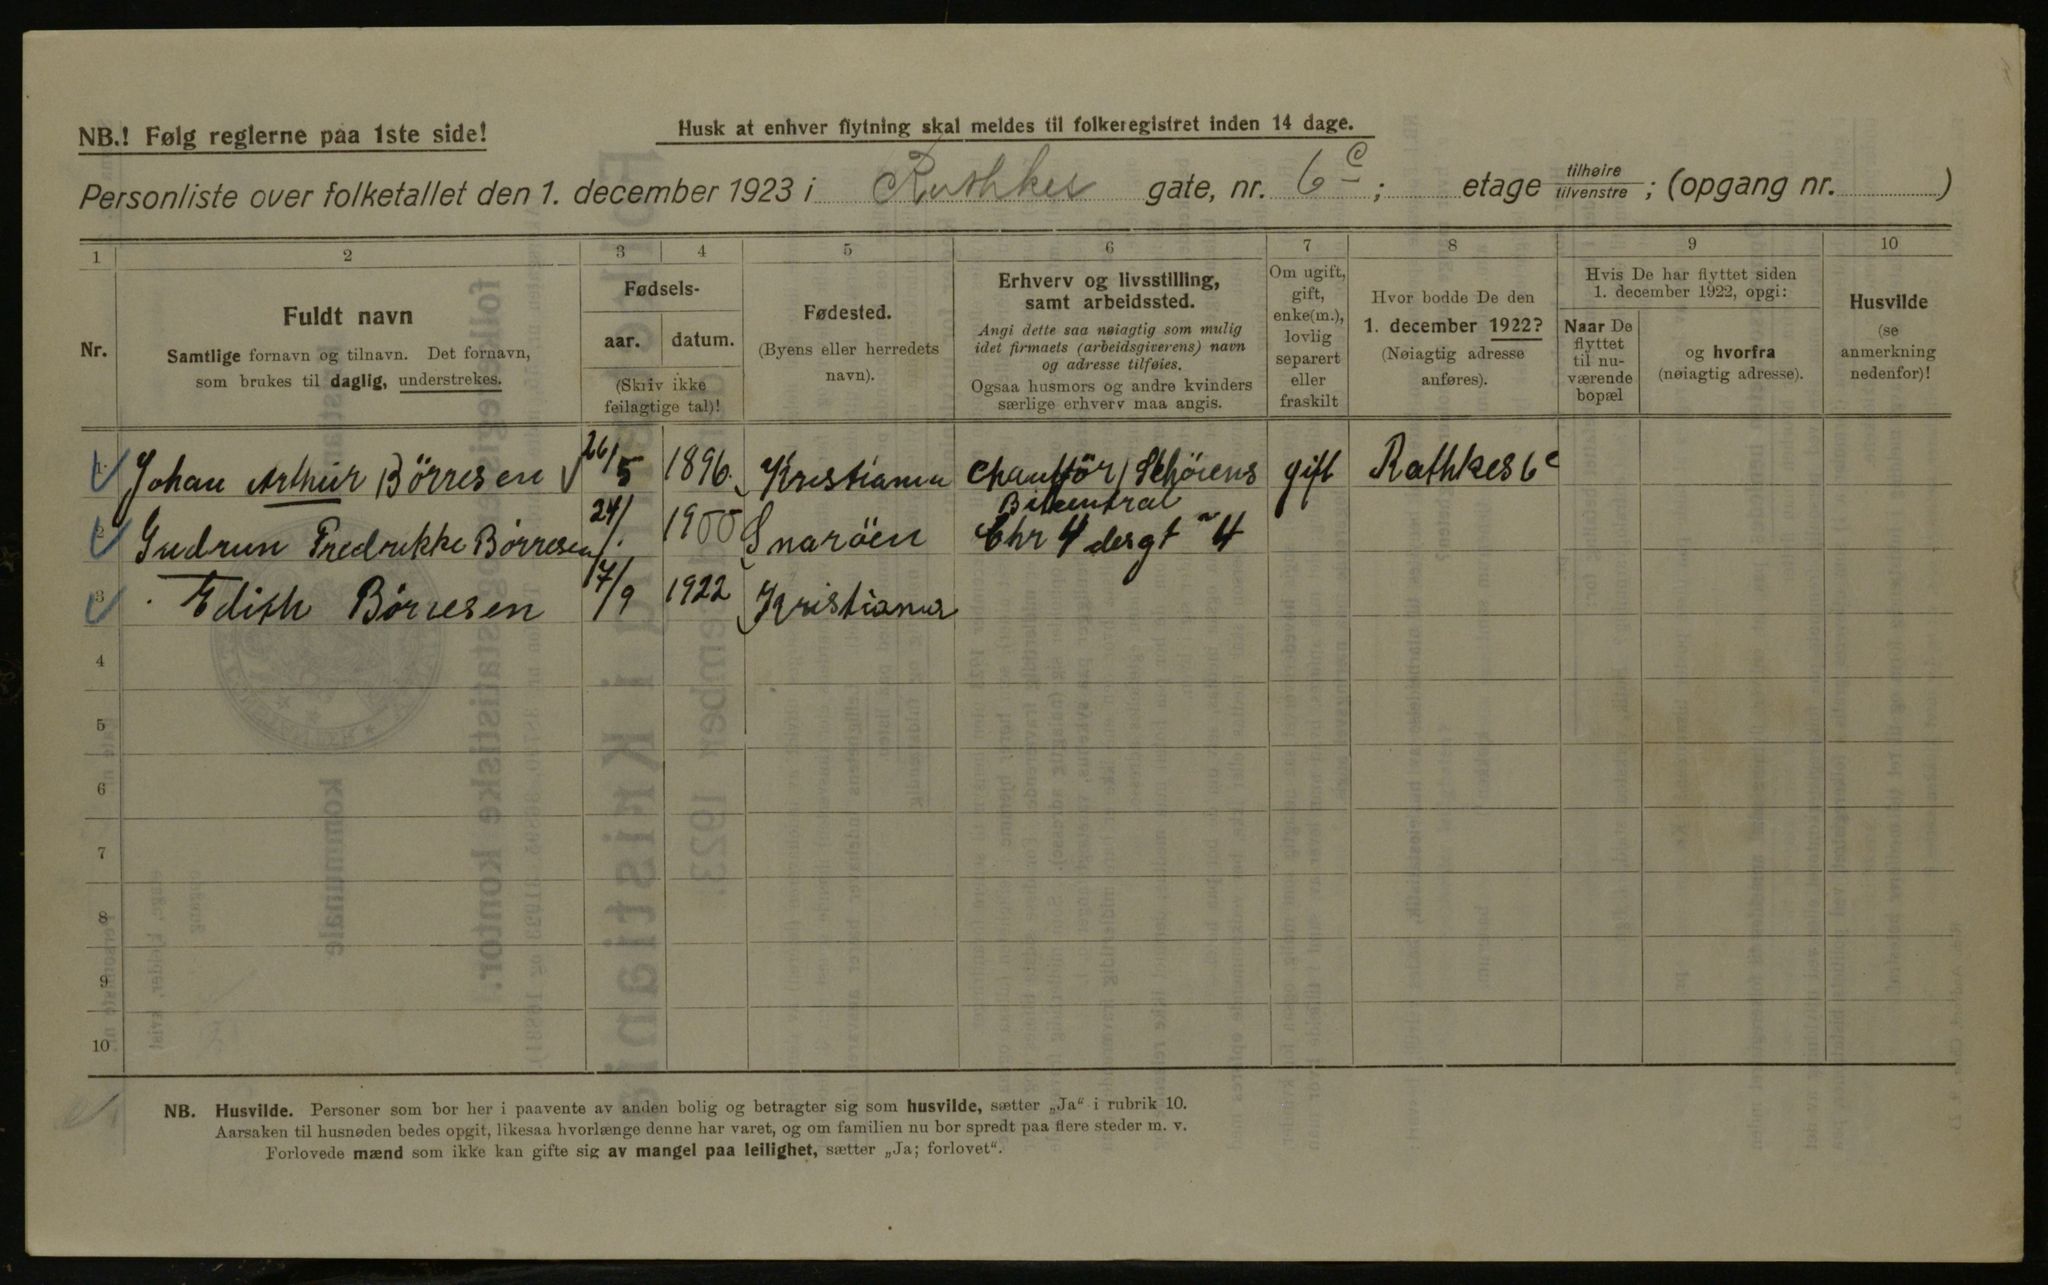 NB.! Følg reglerne paa 1ste side!
Husk at enhver flytning skal meldes til folkeregistret inden 14 dage.
Personliste over folketallet den 1. december 1923 i Rathkes gate, nr. 6 c ; etage tilhøire / tilvenstre ; (opgang nr. )
1 2 3 4 5 6 7 8 9 10
Nr.
Fuldt navn
Samtlige fornavn og tilnavn. Det fornavn,
som brukes til daglig, understrekes.
Fødsels-
aar. datum.
(Skriv ikke
feilagtige tal)!
Fødested.
(Byens eller herredets
navn).
Erhverv og livsstilling,
samt arbeidssted.
Angi dette saa nøiagtig som mulig
idet firmaets (arbeidsgiverens) navn
og adresse tilføies.
Ogsaa husmors og andre kvinders
særlige erhverv maa angis.
Om ugift,
gift,
enke(m.),
lovlig
separert
eller
fraskilt
Hvor bodde De den
1. december 1922?
(Nøiagtig adresse
anføres).
Hvis De har flyttet siden
1. december 1922, opgi:
Naar De
flyttet
til nu-
værende
bopæl
og hvorfra
(nøiagtig adresse).
Husvilde
(se
anmerkning
nedenfor)!
1 Johan Arthur Börresen 26/5 1896. Kristiania Chaufför / Schöiens gift Rathkes 6 c
Bilcentral
2 Gudrun Fredrikke Börresen 24/ 1900 Snaröen Chr 4 des gt 4
3 Edith Börresen 17/9 1922 Kristiania
4
5
6
7
8
9
10
NB. Husvilde. Personer som bor her i paavente av anden bolig og betragter sig som husvilde, sætter „Ja“ i rubrik 10.
Aarsaken til husnøden bedes opgit, likesaa hvorlænge denne har varet, og om familien nu bor spredt paa flere steder m. v.
Forlovede mænd som ikke kan gifte sig av mangel paa leilighet, sætter „Ja; forlovet“.